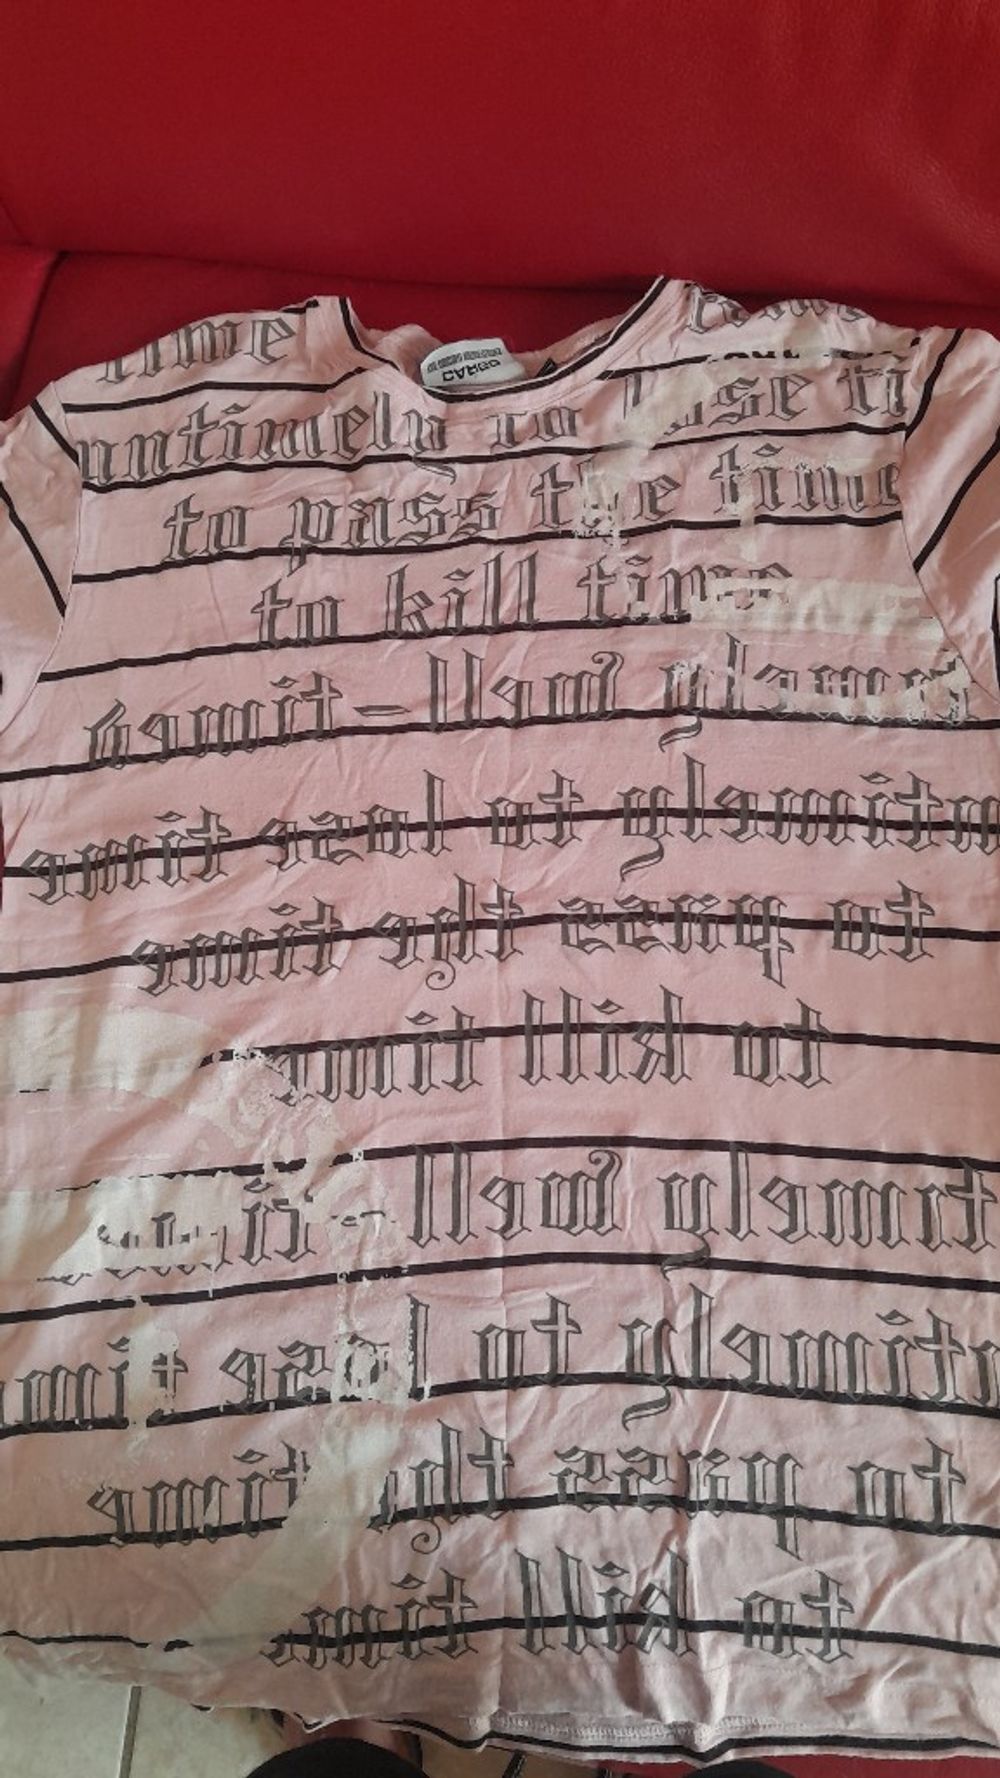 time
untimely to lose ti
to pass the time
to kill time
timely well - timed
ntimely to lose time
to pass the time
to kill time
timely well - tim
ntimely to lose tim
to pass the time
to kill time